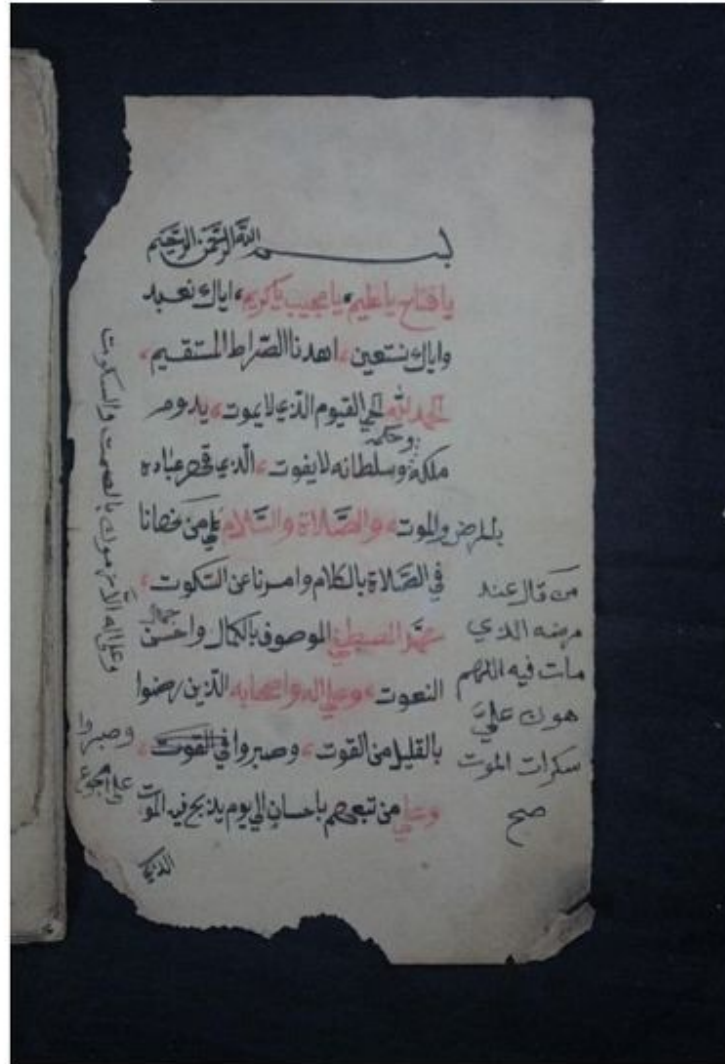 بسم الله الرحمن الرحيم
يا فتاح يا عليم، يا مجيب يا كريم، اياك نعبد
واياك نستعين، اهدنا الصراط المستقيم،
الحمد لله الحي القيوم الذي لا يموت، يدوم
وحكمه
ملكه وسلطانه لا يفوت، الذي قهر عباده
بالمرض والموت، والصلاة والسلام على من
في الصلاة بالكلام وامرنا عن السكوت،
محمد المصطفى الموصوف بالكمال واحسن
جمال
النعوت، وعلى اله واصحابه الذين رضوا
بالقليل من القوت، وصبروا في القوت،
وعلى من تبعهم باحسان الى يوم يذبح فيه الموت
من قال عند
مرضه الذي
مات فيه اللهم
هون علي
سكرات الموت
صح
بالصمت والسكوت
وصبروا
على الجوع